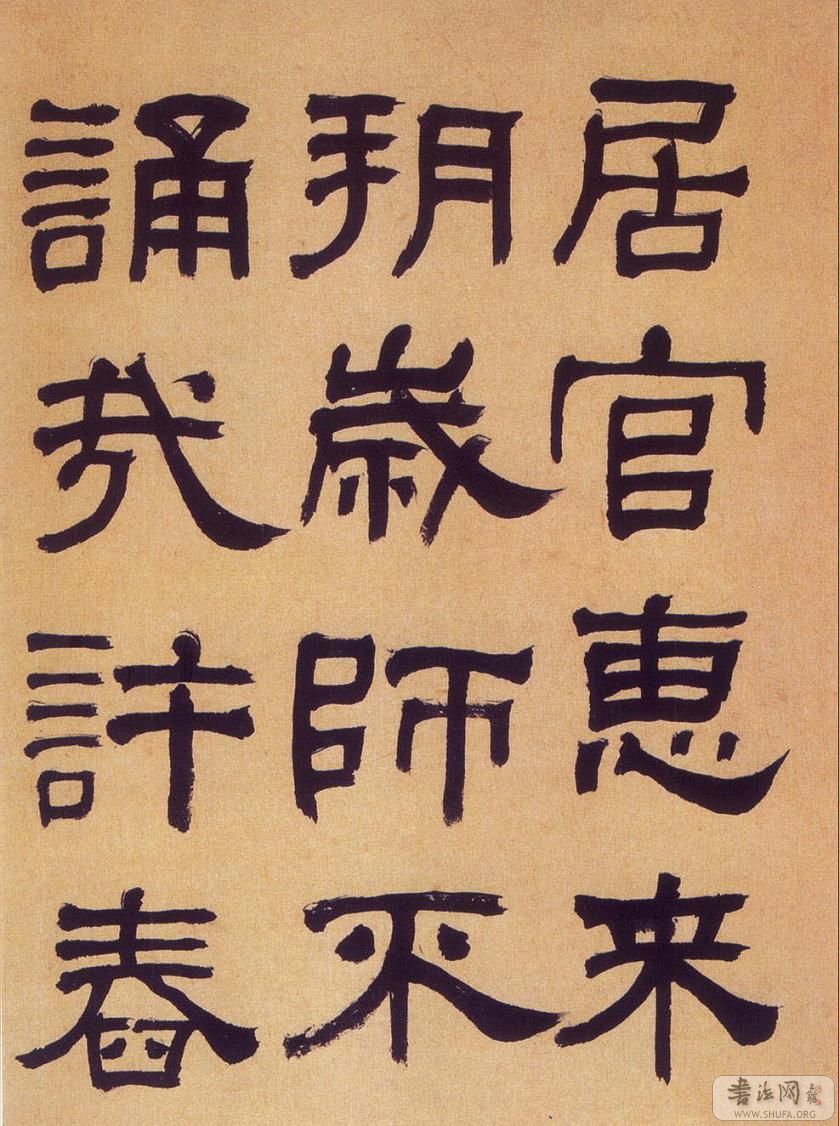 居官惠来
朔歲師不
誦我許舂
書法网
WWW.SHUFA.ORG